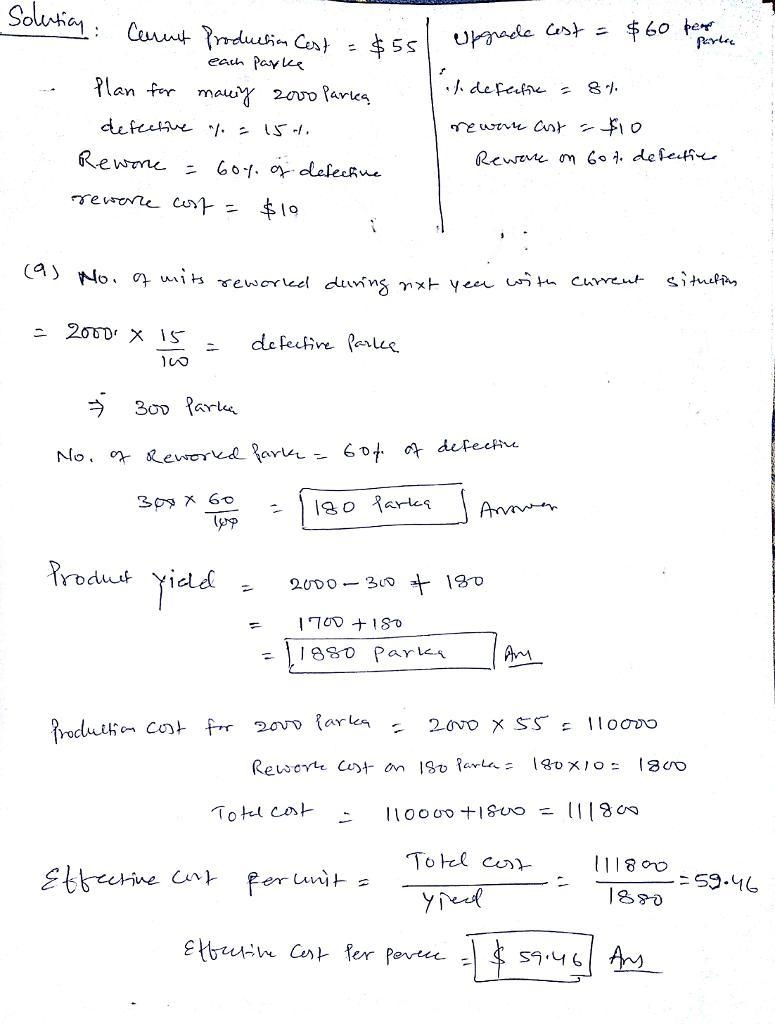 Solution : Current Production Cost = $55
each Parka
Plan for mauy 2000 Parka
defective % = 15%
Rework = 60% of defective
rework cost = $10
Upgrade Cost = $60 per
Parka
% defective = 8%
rework cost = $10
Rework on 60% defective
(a) No. of units reworked during nxt year with current situation
= 2000 × 15/100 = defective Parka
⇒ 300 Parka
No. of Reworked Parka = 60% of defective
300 × 60/100 = 180 Parka Answer
Product Yield = 2000 - 300 + 180
= 1700 + 180
= 1880 Parka Ans
Production Cost for 2000 Parka = 2000 × 55 = 110000
Rework Cost on 180 Parka = 180×10 = 1800
Total cost = 110000+1800 = 111800
Effective cost per unit = Total cost/Yield = 111800/1880 = 59.46
Effective Cost Per = $59.46 Ans